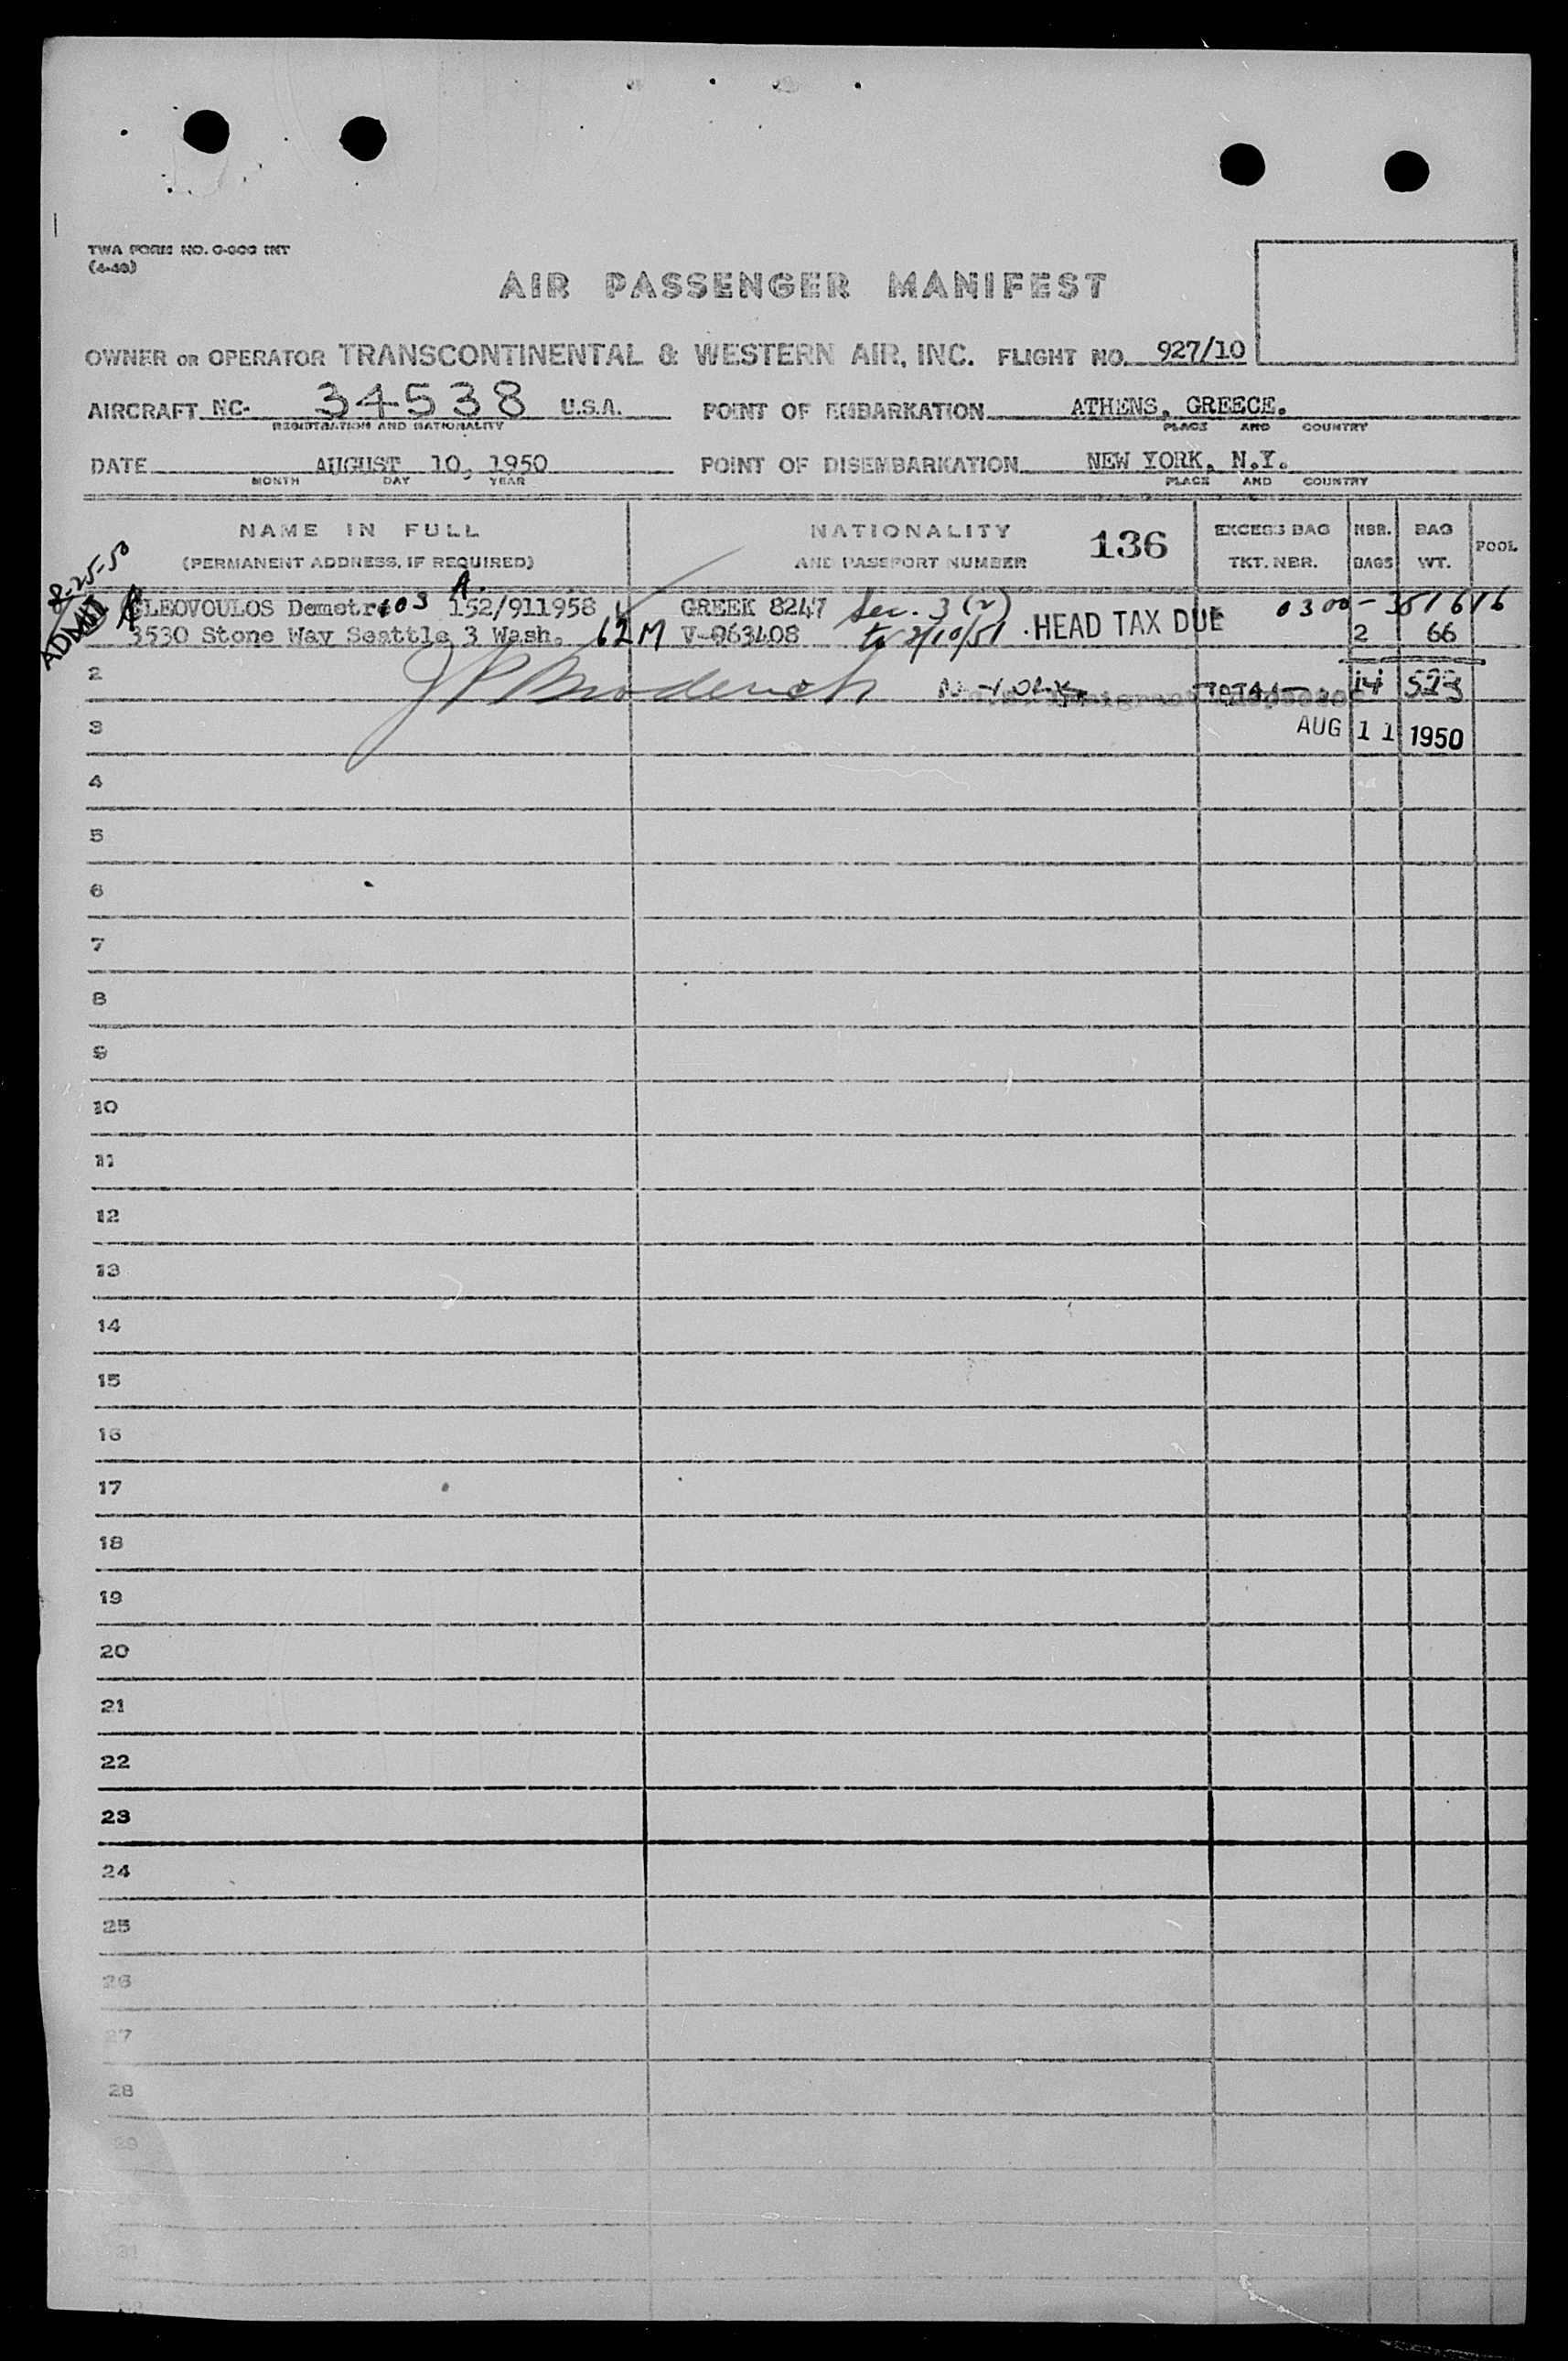 TWA FORM NO.
AIR PASSENGER MANIFEST
OWNER OR OPERATOR TRANSCONTINENTAL & WESTERN AIR, INC. FLIGHT NO. 927/10
AIRCRAFT NC- 34538 U.S.A. POINT OF EMBARKATION ATHENS, GREECE.
REGISTRATION AND NATIONALITY PLACE AND COUNTRY
DATE AUGUST 10, 1950 POINT OF DISEMBARKATION NEW YORK, N.Y.
MONTH DAY YEAR PLACE AND COUNTRY
NAME IN FULL NATIONALITY 136 EXCESS BAG NBR. BAG POOL
(PERMANENT ADDRESS, IF REQUIRED) AND PASSPORT NUMBER TKT. NBR. BAGS WT.
8-25-50
ADMIT
A.
CLEOVOULOS Demetrios 152/911958 GREEK 8247 Sec. 3 (2) 0300-
3530 Stone Way Seattle 3 Wash. 62 M V-963408 to 2/10/51 HEAD TAX DUE 2 66
2 TOTAL 14
3 AUG 11 1950
4
5
6
7
8
9
10
11
12
13
14
15
16
17
18
19
20
21
22
23
24
25
26
27
28
29
31